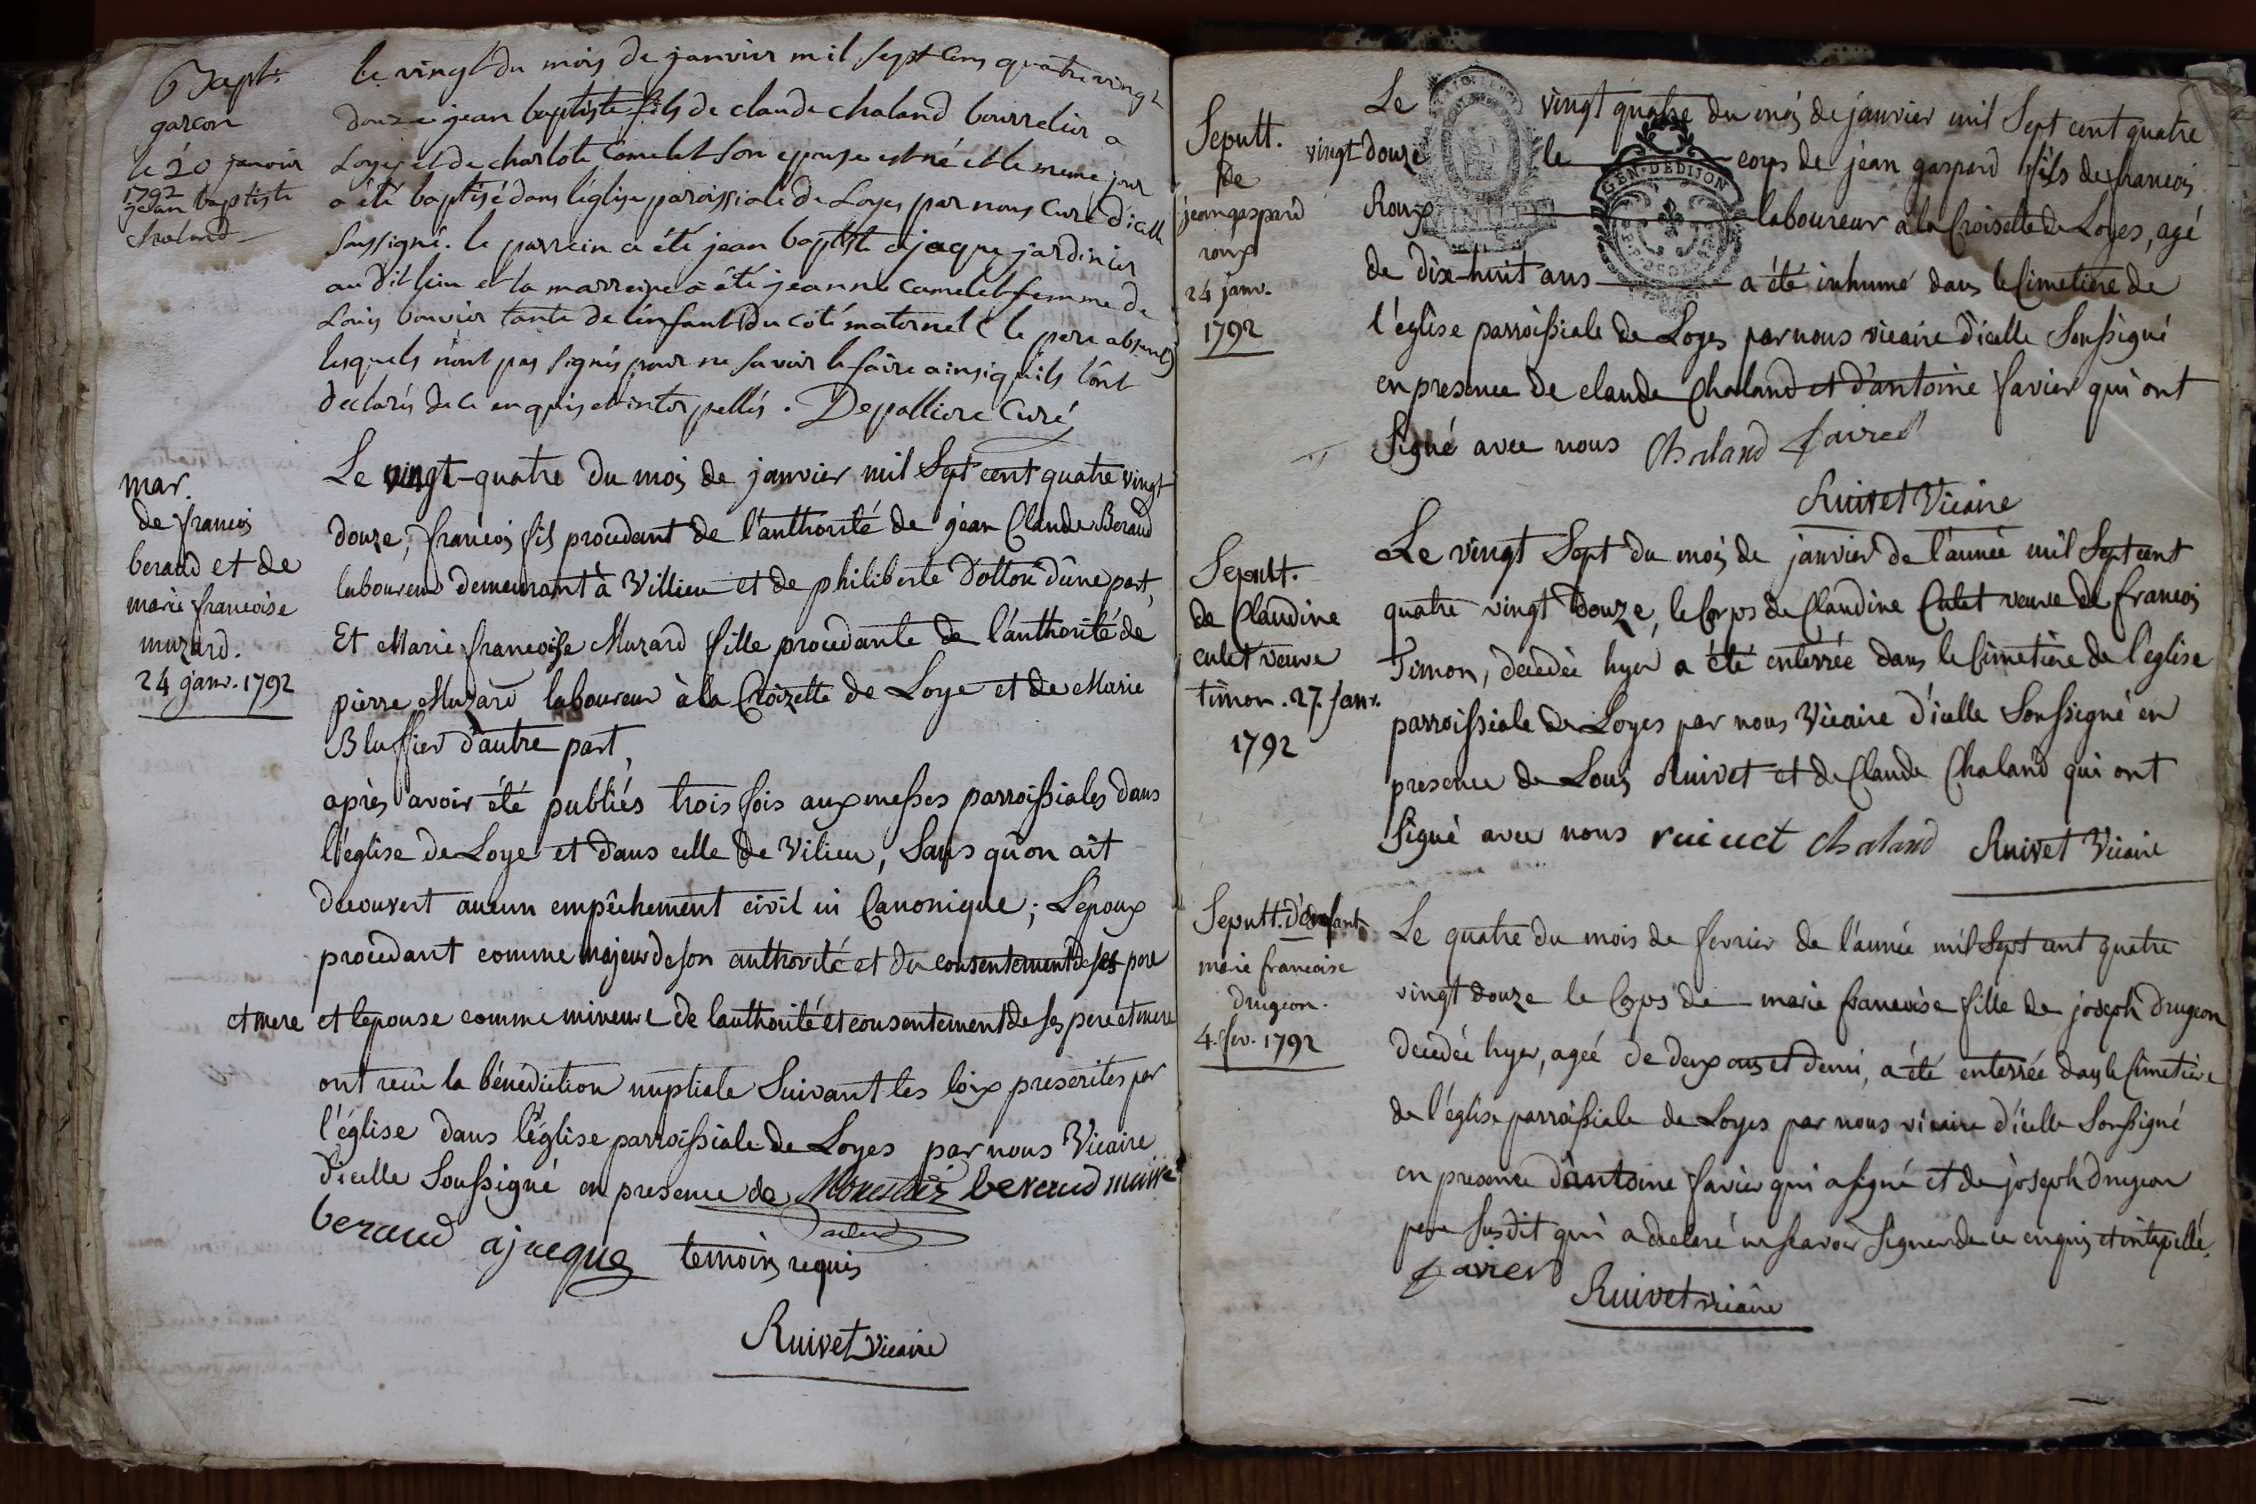 Bapt.
garcon
le 20 janvier
1792
jean baptiste
Chaland
le vingt du mois de janvier mil sept cens quatre vingt
douze jean baptiste fils de claude chaland bourrelier a
Loyes et de charlote Camelet son epouse est né et le meme jour
a été baptisé dans l'église paroissiale de Loyes par nous Curé d'icelle
soussigné. le parrein a été jean baptiste ajaque jardinier
au dit lieu et la marreine a été jeanne camelet femme de
Louis bouvier tante de l'enfant du côté maternel (le pere absent)
lesquels n'ont pas signés pour ne savoir le faire ainsi qu'ils l'ont
declarés de ce enquis et interpellés. Depalliere Curé
mar.
de francois
beraud et de
marie francoise
muzard.
24 janv. 1792
Le vingt-quatre du mois de janvier mil Sept cent quatre vingt
douze, francois fils procedant de l'authorité de jean Claude Beraud
laboureur demeurant à Villieu et de philiberte Dottou d'une part,
Et Marie francoise Muzard fille procedante de l'authorité de
pierre Muzard laboureur à la Croizette de Loye et de Marie
Bluffier d'autre part,
après avoir été publiés trois fois aux messes parroissiales dans
l'église de Loye et dans celle de Vilieu, sans qu'on ait
decouvert aucun empêchement civil ni Canonique; L'epoux
procedant comme majeur de son authorité et du consentement de ses pere
et mere et l'epouse comme mineure de l'authorité et consentement de ses pere et mere
ont recu la bénédiction nuptiale Suivant les loix prescrites par
l'église dans l'église parroissiale de Loyes par nous Vicaire
d'icelle Soussigné en presence de beraud maire
beraud ajacque temoins requis
Ruivet Vicaire
Sepult.
de
jean gaspard
roux
24 janv.
1792
Le vingt quatre du mois de janvier mil Sept cent quatre
vingt douze le corps de jean gaspard fils de francois
GEN. DE DIJON
Roux laboureur à la Croisette de Loyes, agé
de dix-huit ans a été inhumé dans le Cimetière de
l'église parroissiale de Loyes par nous vicaire d'icelle Soussigné
en presence de claude Chaland et d'antoine favier qui ont
Signé avec nous Chaland favier
Ruivet Vicaire
Sepult.
de Claudine
culet veuve
timon. 27. Janv.
1792
Le vingt Sept du mois de janvier de l'année mil Sept cent
quatre vingt douze, le Corps de Claudine Culet veuve de francois
Timon, decedée hyer a été enterrée dans le Cimetière de l'église
parroissiale de Loyes par nous Vicaire d'icelle Soussigné en
presence de Louis Ruivet et de Claude Chaland qui ont
Signé avec nous ruivet Chaland Ruivet Vicaire
Sepult. d'enfant
marie francoise
drugeon.
4. fev. 1792
Le quatre du mois de fevrier de l'année mil Sept cent quatre
vingt douze le Corps de marie francoise fille de joseph drugeon
decedée hyer, ageé de deux ans et demi, a été enterrée dans le Cimetière
de l'église parroissiale de Loyes par nous vicaire d'icelle Soussigné
en presence d'antoine favier qui a signé et de joseph drugeon
pere susdit qui a declaré ne scavoir Signer de ce enquis et intepellé.
favier
Ruivet vicaire